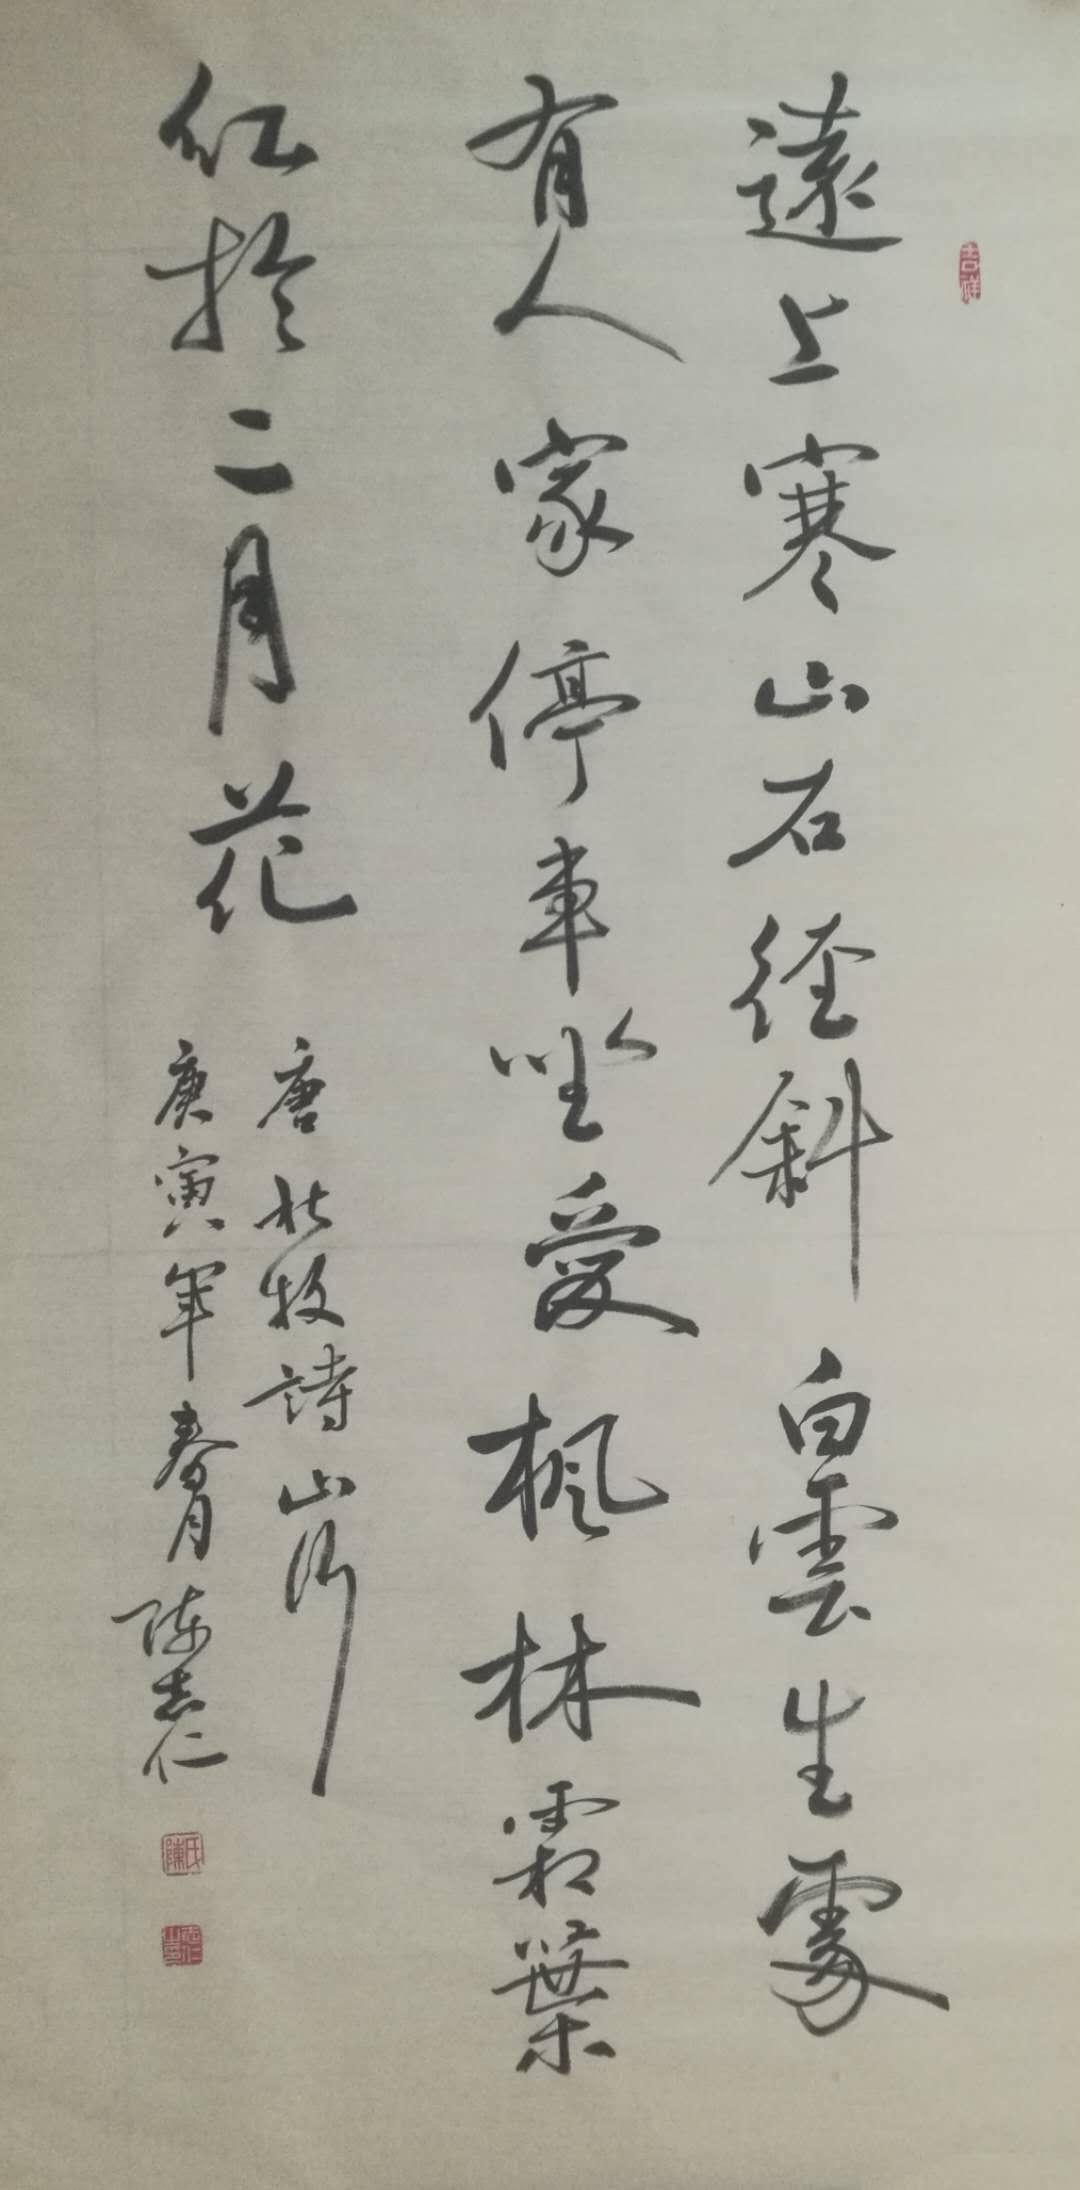 遠上寒山石徑斜白雲生處
有人家停車坐愛楓林霜葉
紅於二月花
唐杜牧詩山行
庚寅年春月陈志仁
吉祥
陳氏
志仁